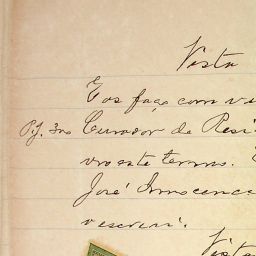 Vista
E os faço com vis
P.J. 3no Curador de Resi
vro este termo. E
José Innocenci
o escrevi.
Vista